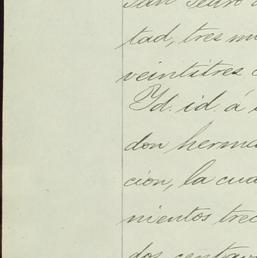 San Pedro
tad, tres mi
veintitres
Yd. id á
don herma
cion, la cua
nientos trec
dos centav